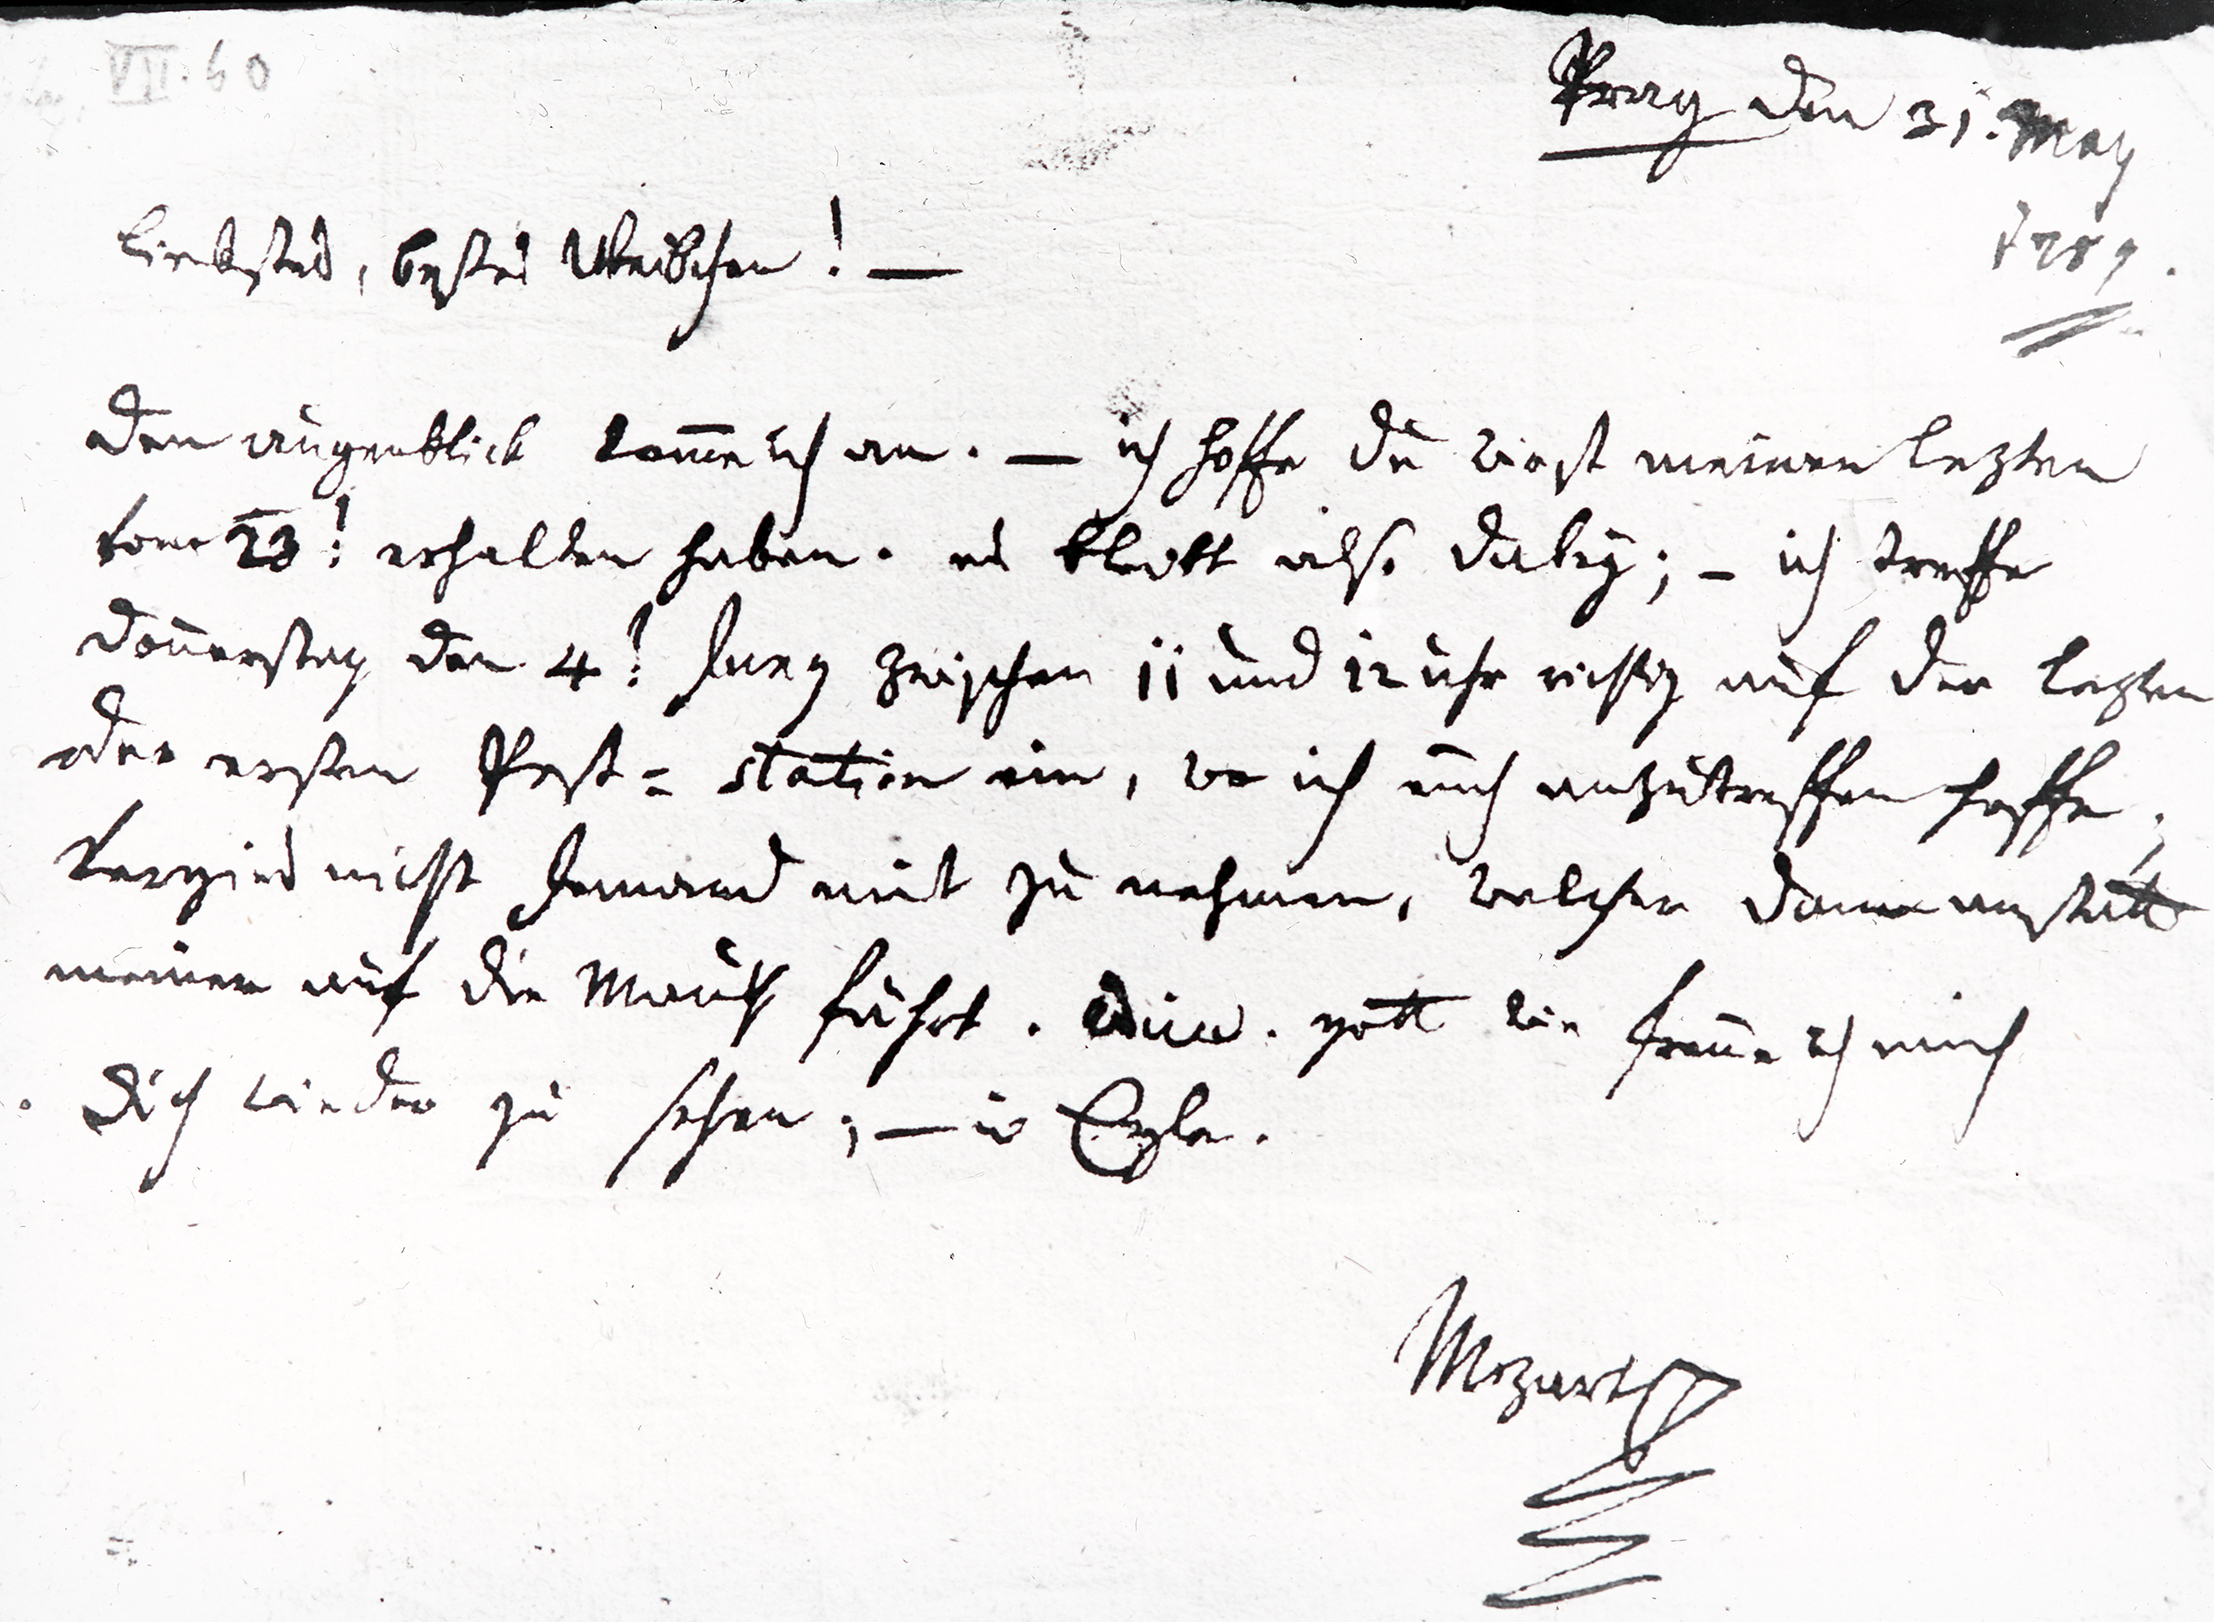 VII. 60
Prag den 31:t May
1789.
liebstes, bestes Weibchen! —
den augenblick komme ich an. — ich hoffe du wirst meinen lezten
vom 23:t erhalten haben. es bleibt also dabey; — ich treffe
donnerstag den 4:t Juny zwischen 11 und 12 uhr richtig auf der lezten
oder ersten Post=station ein, wo ich euch anzutreffen hoffe;
vergiss nicht Jemand mit zu nehmen, welcher dann anstatt
meiner auf die Mauth fährt. adieu. gott wie freue ich mich
dich wieder zu sehen; — in Eyle.
Mozart